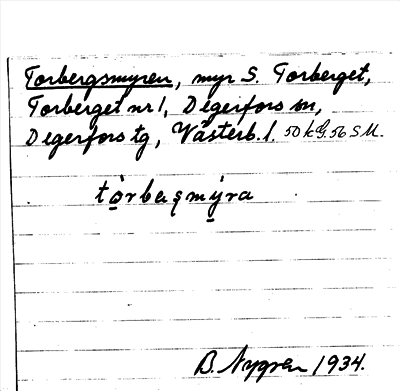 Torbergsmyren, myr S. Torberget,
Torberget nr 1, Degerfors sn,
Degerfors tg, Västerb. l. 50 k G. 56 S U.
tòrbeqmýra
B. Nygren 1934.